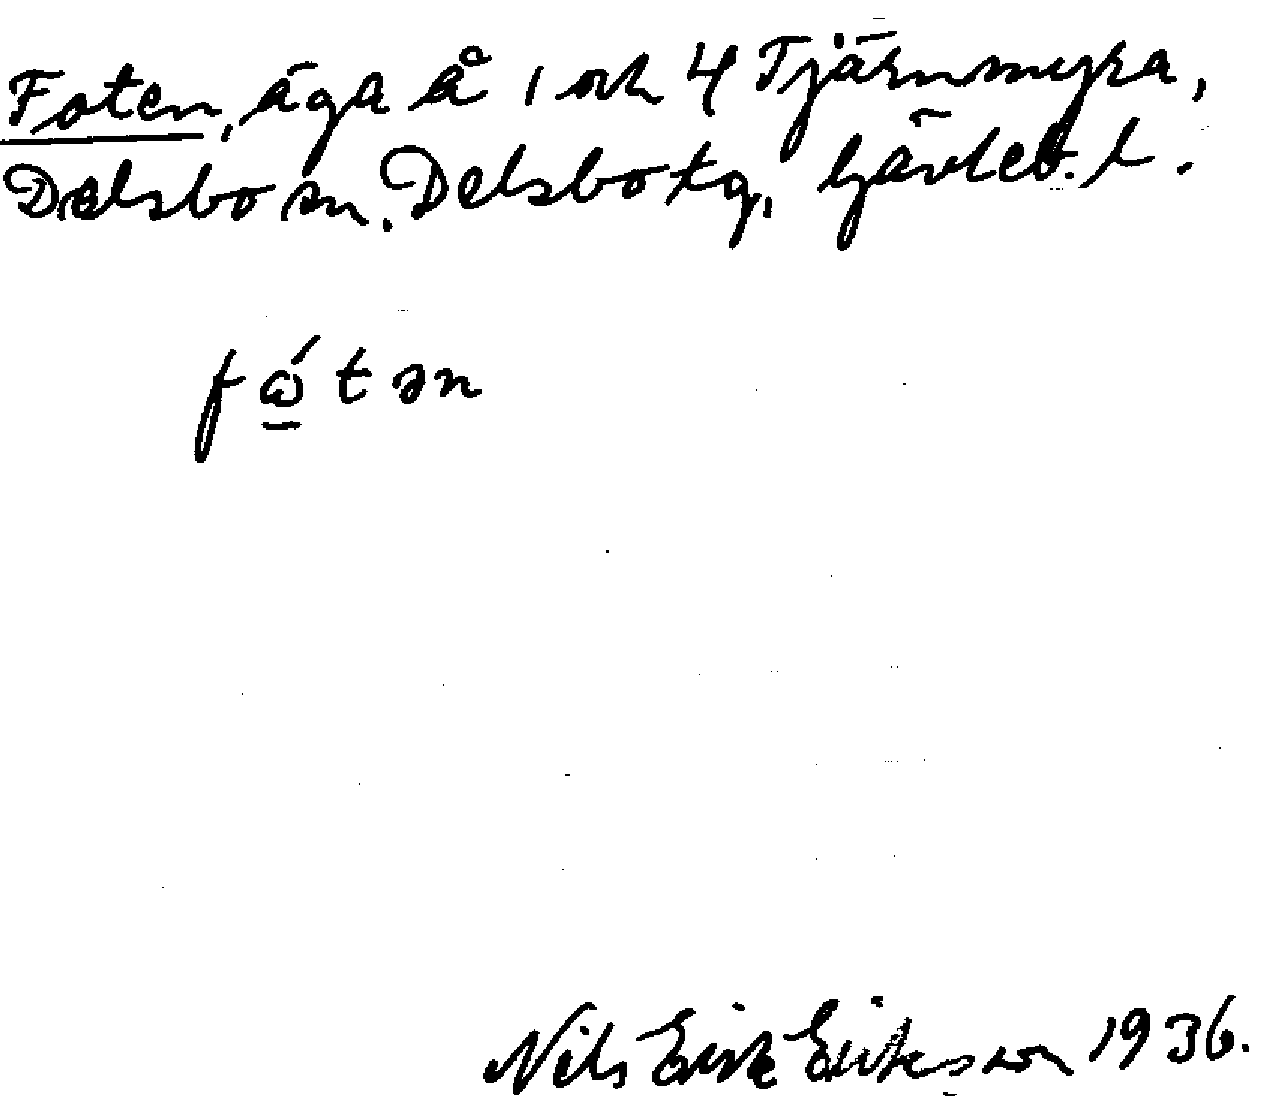 Foten, äga å 1 och 4 Tjärnmyra,
Delsbo sn. Delsbo tg, Gävleb. l.
fώ̲tən
Nils Erik Eriksson 1936.